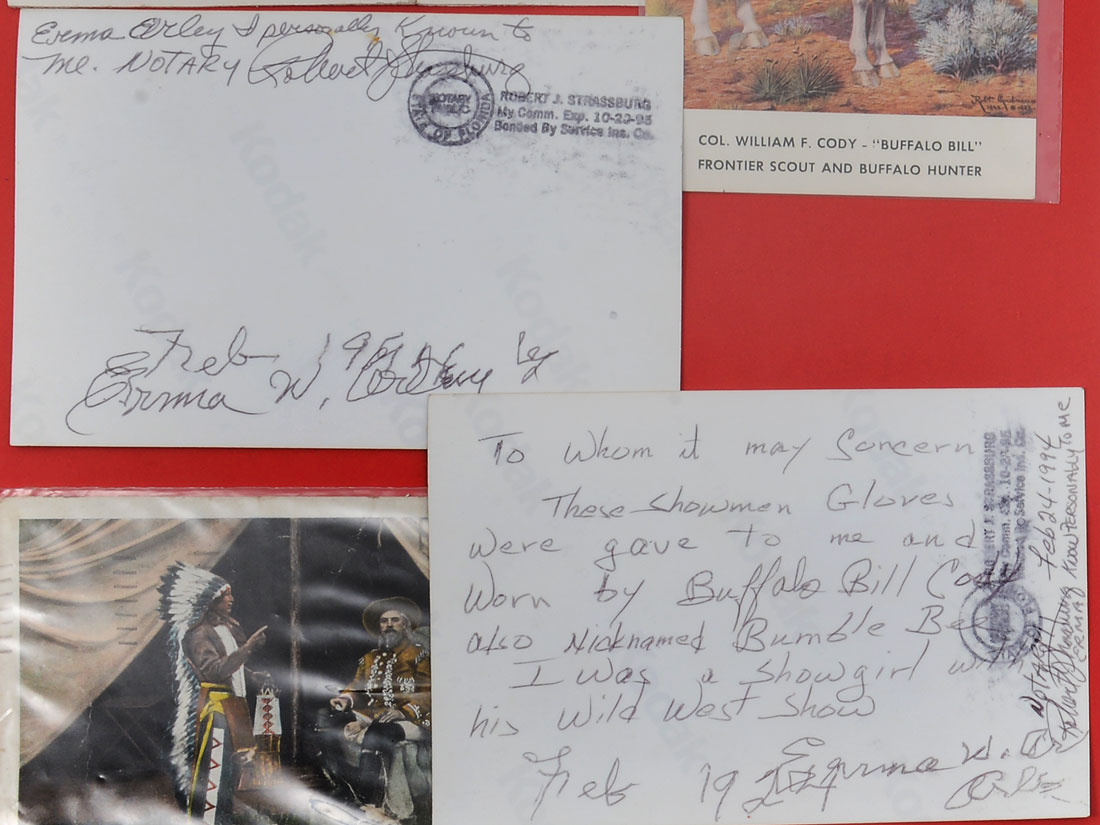 Erma Orley I personally Known to
me. NOTARY Robert J Strassburg
NOTARY PUBLIC
STATE OF FLORIDA
ROBERT J. STRASSBURG
My Comm. Exp. 10-23-95
Bonded By Service Ins. Co.
Kodak
Kodak
Kodak
Feb
Erma W.
COL. WILLIAM F. CODY - "BUFFALO BILL"
FRONTIER SCOUT AND BUFFALO HUNTER
To Whom it may Concern
These Showmen Gloves
were gave to me and
Worn by Buffalo Bill Cody
also Nicknamed Bumble Bee
I was a Showgirl with
his Wild West Show
Feb 19 Erma W.
ROBERT J. STRASSBURG
My Comm. Exp. 10-23-95
Bonded By Service Ins. Co.
Notary Feb 24-1994
ERMA KNOW PERSONALLY TO ME